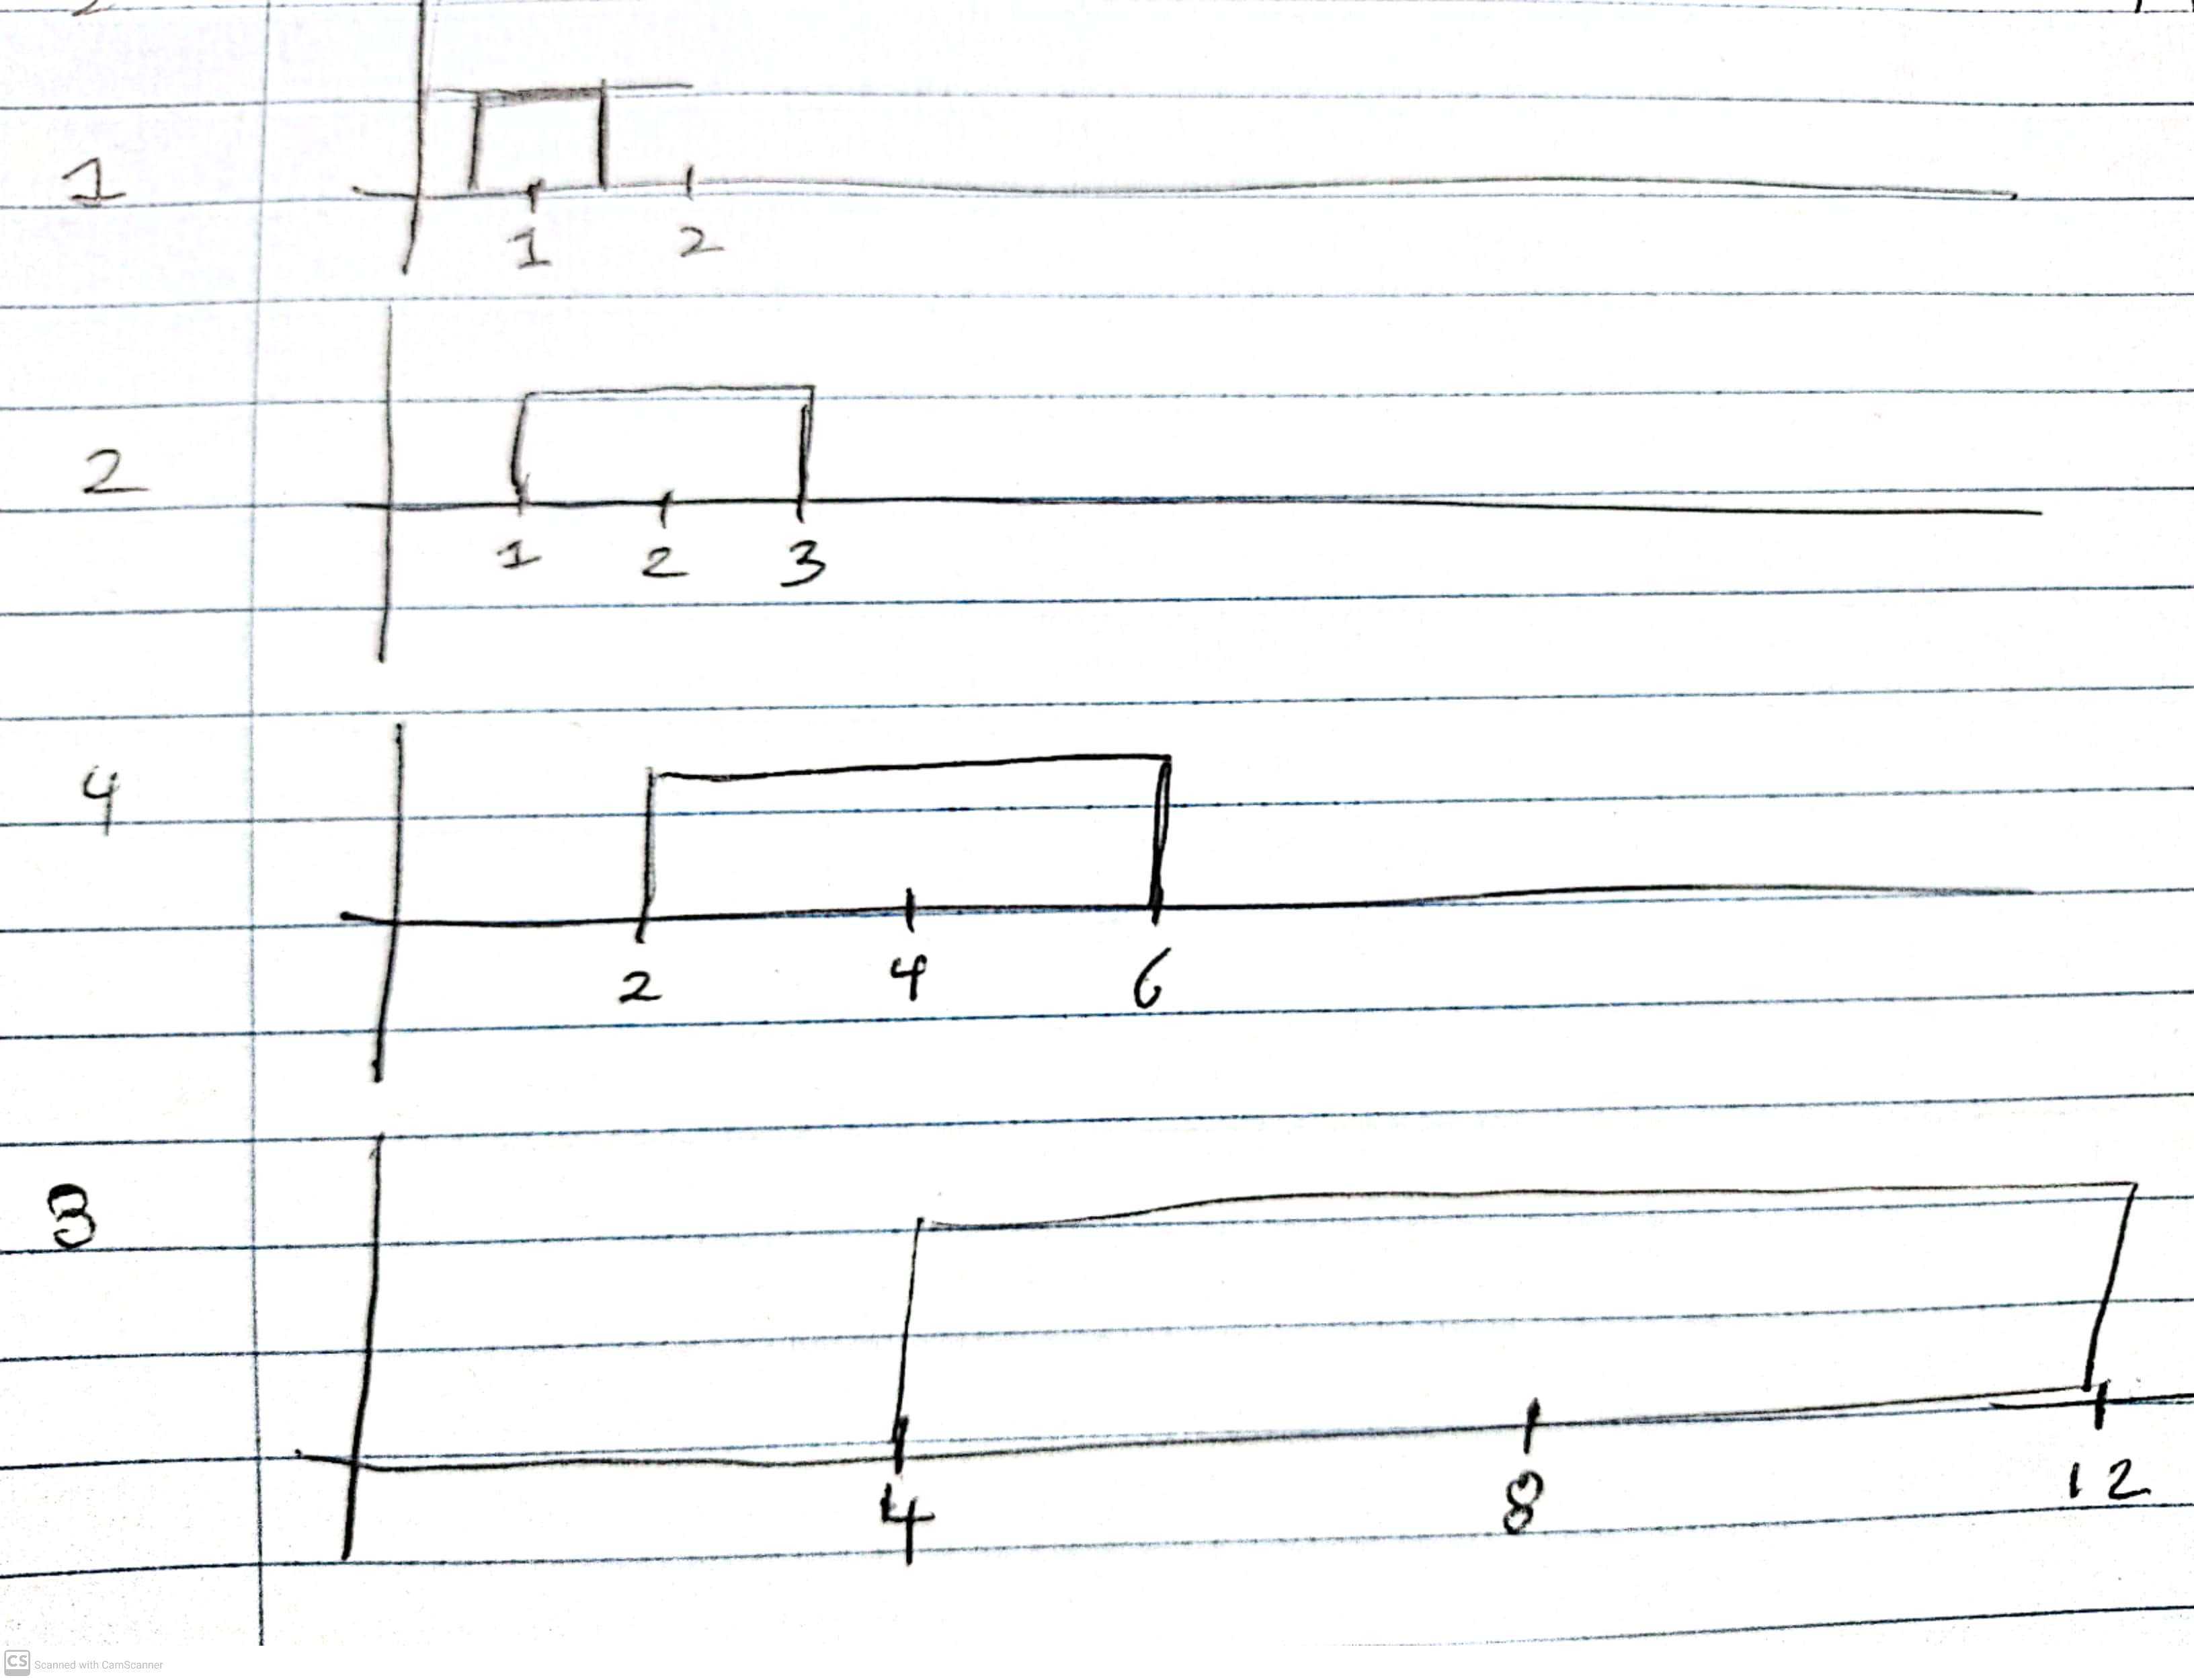 1
1 2
2
1 2 3
4
2 4 6
3
4 8 12
CS Scanned with CamScanner